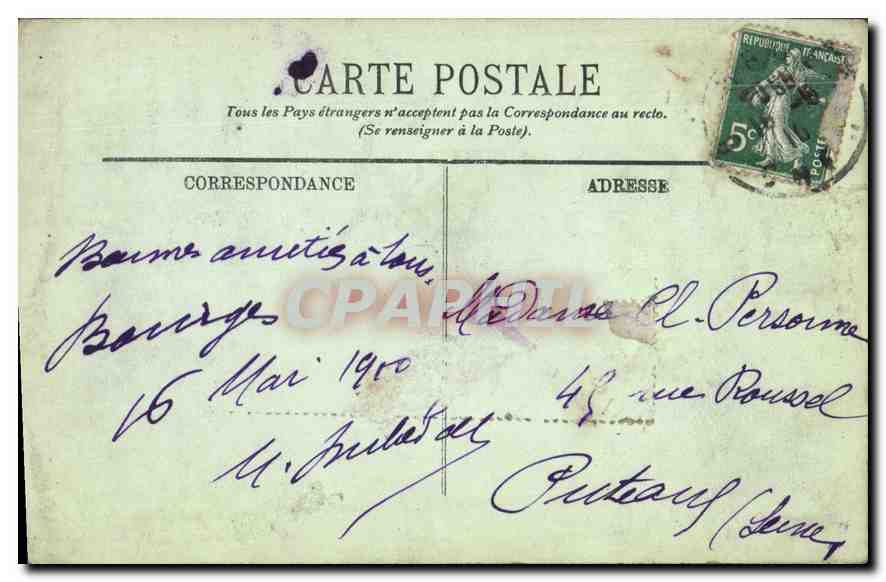 CARTE POSTALE
Tous les Pays étrangers n'acceptent pas la Correspondance au recto.
(Se renseigner à la Poste).
REPUBLIQUE FRANÇAISE
5c
POSTE
CORRESPONDANCE
ADRESSE
Bonnes amitiés à tous.
Bourges
16 Mai 1900
M.
CPARAMA
Madame Cl. Personne
45 rue Roussel
Puteaux
(Seine)